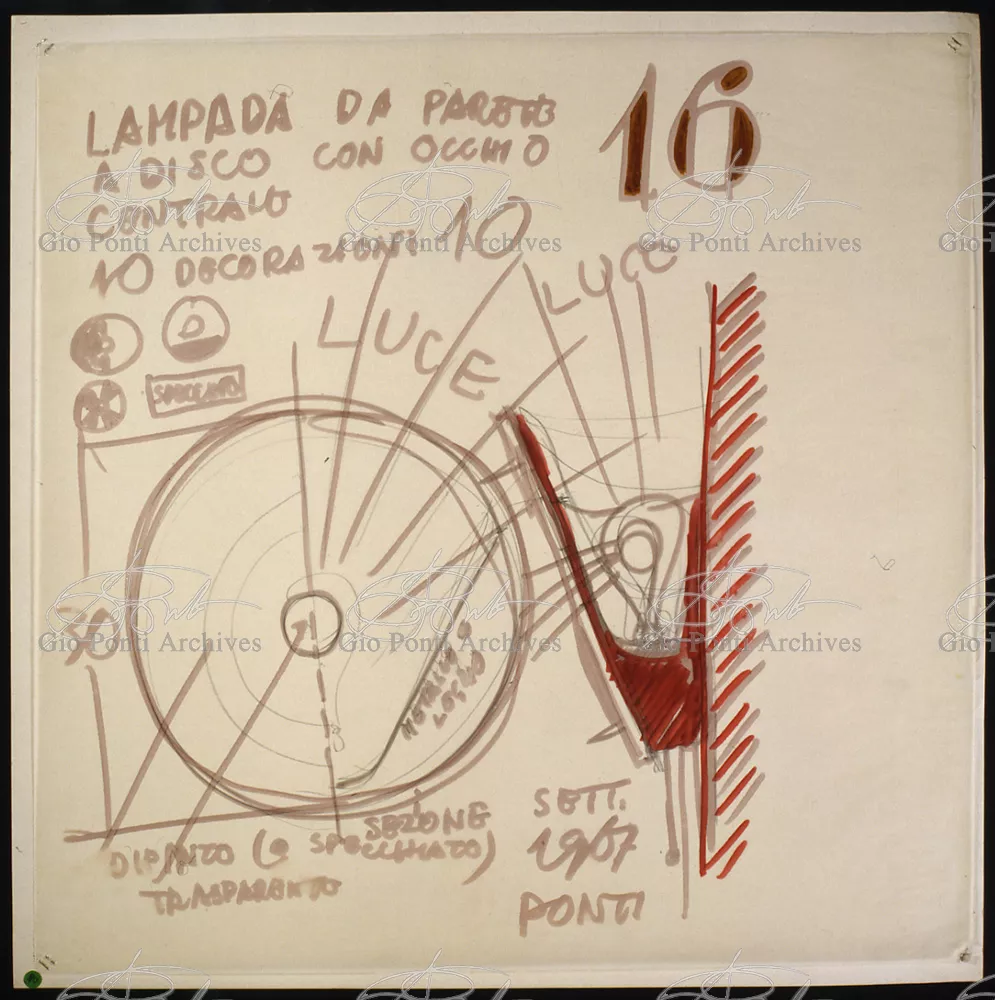 LAMPADA DA PARETE
16
A DISCO CON OCCHIO
CENTRALE
10 DECORAZIONI 10
LUCE
LUCE
D
SPECCHIO
METALLO
LEGNO
SEZIONE
DIPINTO (O SPECCHIATO)
TRASPARENTE
SETT.
1967
PONTI
Gio Ponti Archives
Gio Ponti Archives
Gio Ponti Archives
Gio Ponti Archives
Gio Ponti Archives
Gio Ponti Archives